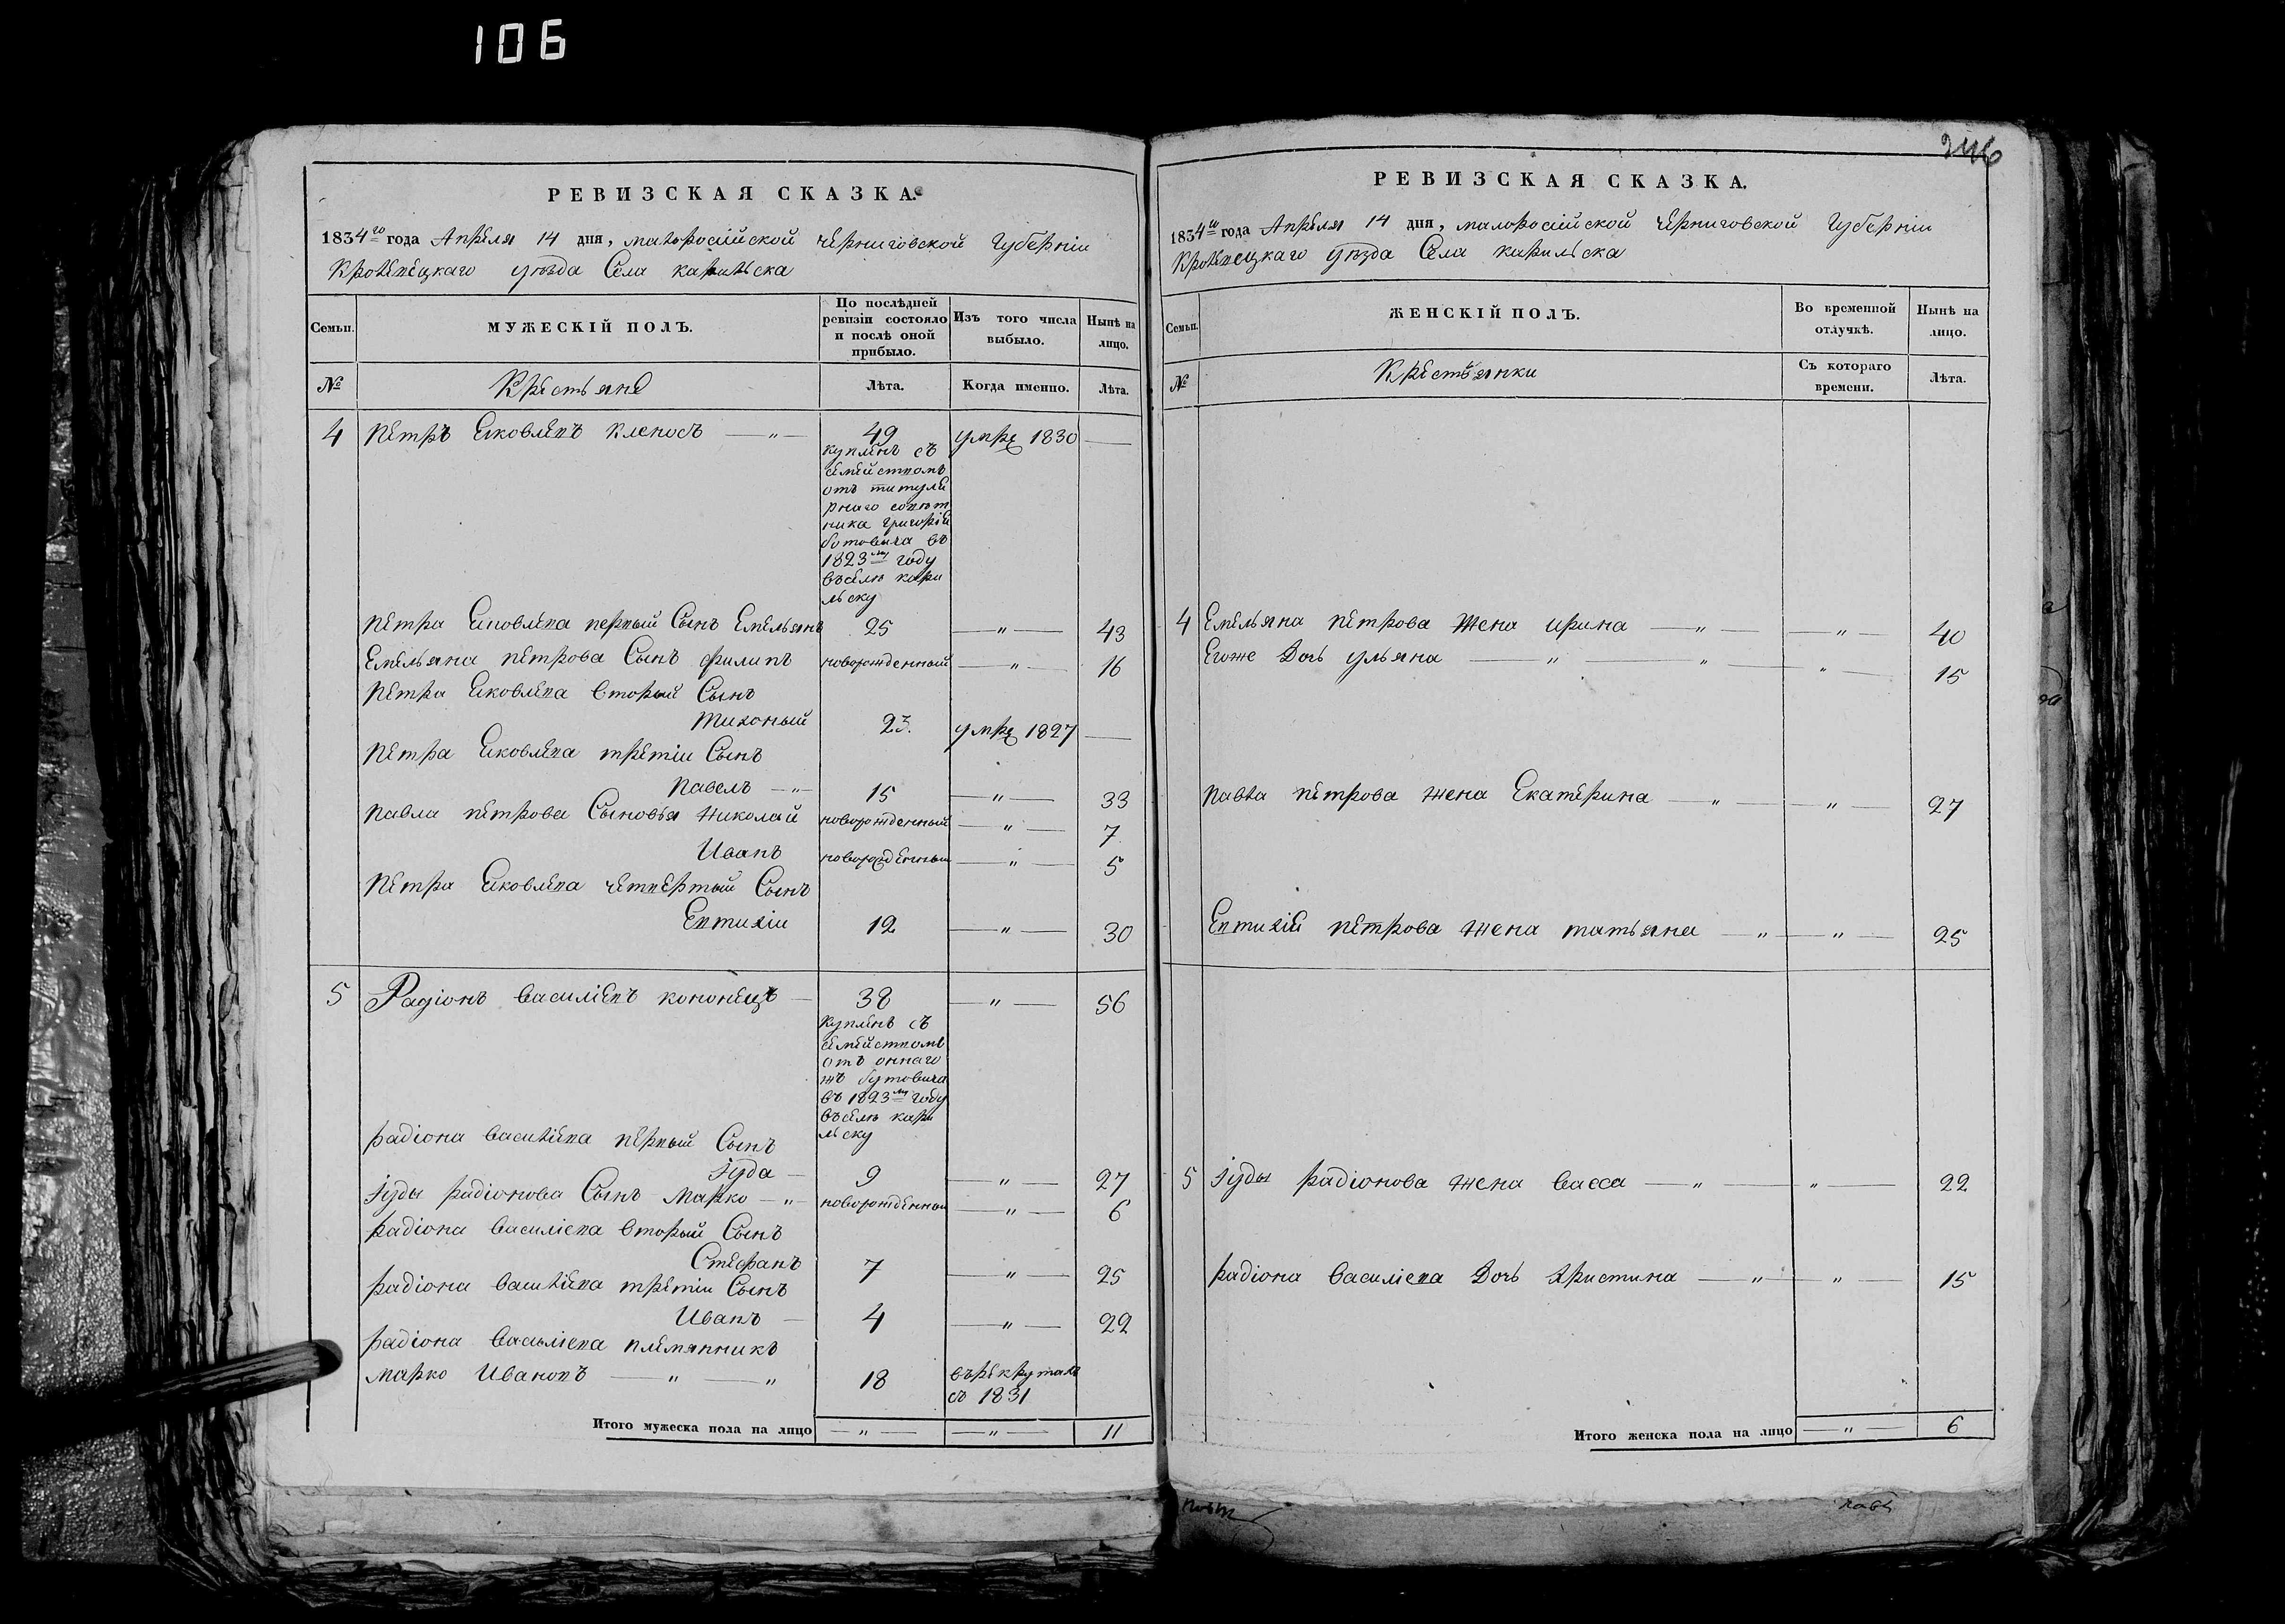 106
346
РЕВИЗСКАЯ СКАЗКА.
1834го года Апреля 14 дня, малоросийской черниговской Губерніи
Кролевецкаго уезда Села карильска
Семьи.
МУЖЕСКІЙ ПОЛЪ.
По послѣдней ревизіи состояло и послѣ оной прибыло.
Изъ того числа выбыло.
Нынѣ на лицо.
№
Крестьяне
Лѣта.
Когда именно.
Лѣта.
4 Петръ Яковлевъ Кленосъ — „ — 49 умре 1830 —
куплинъ съ
семействомъ
отъ титуля
рнаго советт
ника Григорія
бутовича въ
1823му году
въселе кари
льску
Петра Яковлева первый Сынъ Емельянъ 25 — „ — 43
Емельяна петрова Сынъ филипъ новорожденный — „ — 16
Петра Яковлева Вторый Сынъ
тихоный 23. умре 1827 —
Петра Яковлева третіи Сынъ
Павелъ — „ — 15 — „ — 33
Павла петрова Сыновья Николай новорожденный — „ — 7
Иванъ новорожденный — „ — 5
Петра Яковлева четвертый Сынъ
Евтихіи 12 — „ — 30
5 Радіонъ василіевъ кононецъ — 38 — „ — 56
куплинъ съ
семействомъ
отъ оннаго
жъ бутовича
въ 1823му году
въселе кари
льску
радіона василіева первый Сынъ
Іуда — 9 — „ — 27
Іуды радіонова Сынъ Марко — „ — новорожденный — „ — 6
радіона василіева Вторый Сынъ
Стефанъ 7 — „ — 25
радіона василіева третіи Сынъ
Иванъ — 4 — „ — 22
радіона василіева племянникъ
марко Ивановъ — „ — „ 18 върекрутахъ
съ 1831
Итого мужеска пола на лицо — „ — — „ — 11
РЕВИЗСКАЯ СКАЗКА.
1834го года Апреля 14 дня, малоросийской черниговской Губерніи
Кролевецкаго уезда Села карильска
Семьи.
ЖЕНСКІЙ ПОЛЪ.
Во временной отлучкѣ.
Нынѣ на лицо.
№
Крестьянки
Съ котораго времени.
Лѣта.
4 Емельяна петрова жена ирина — „ — — „ — 40
Егоже Дочь ульяна — „ — „ — „ — 15
Павла петрова жена Екатерина — „ — „ — 27
Евтихія петрова жена татьяна — „ — „ — 25
5 Іуды радіонова жена васса — „ — „ — 22
радіона василіева Дочь христина — „ — „ — 15
Итого женска пола на лицо — „ — 6